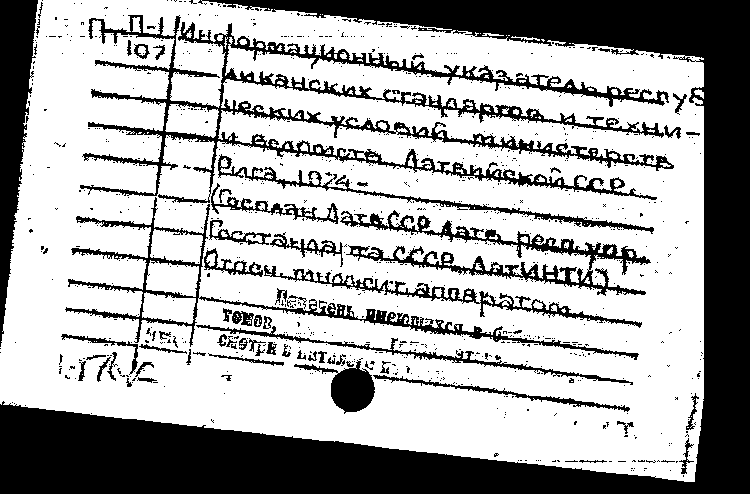 Пт П-1 Информационный указатель респуб
107
ликанских стандартов и техни-
ческих условий министерств
и ведомств Латвийской ССР.
Рига, 1974-
(Госплан ЛатвССР Латв. респ. упр.
Госстандарта СССР ЛатИНТИ).
Отпеч. множит. аппаратом.
Перечень имеющихся в
томов,
смотри в каталоге